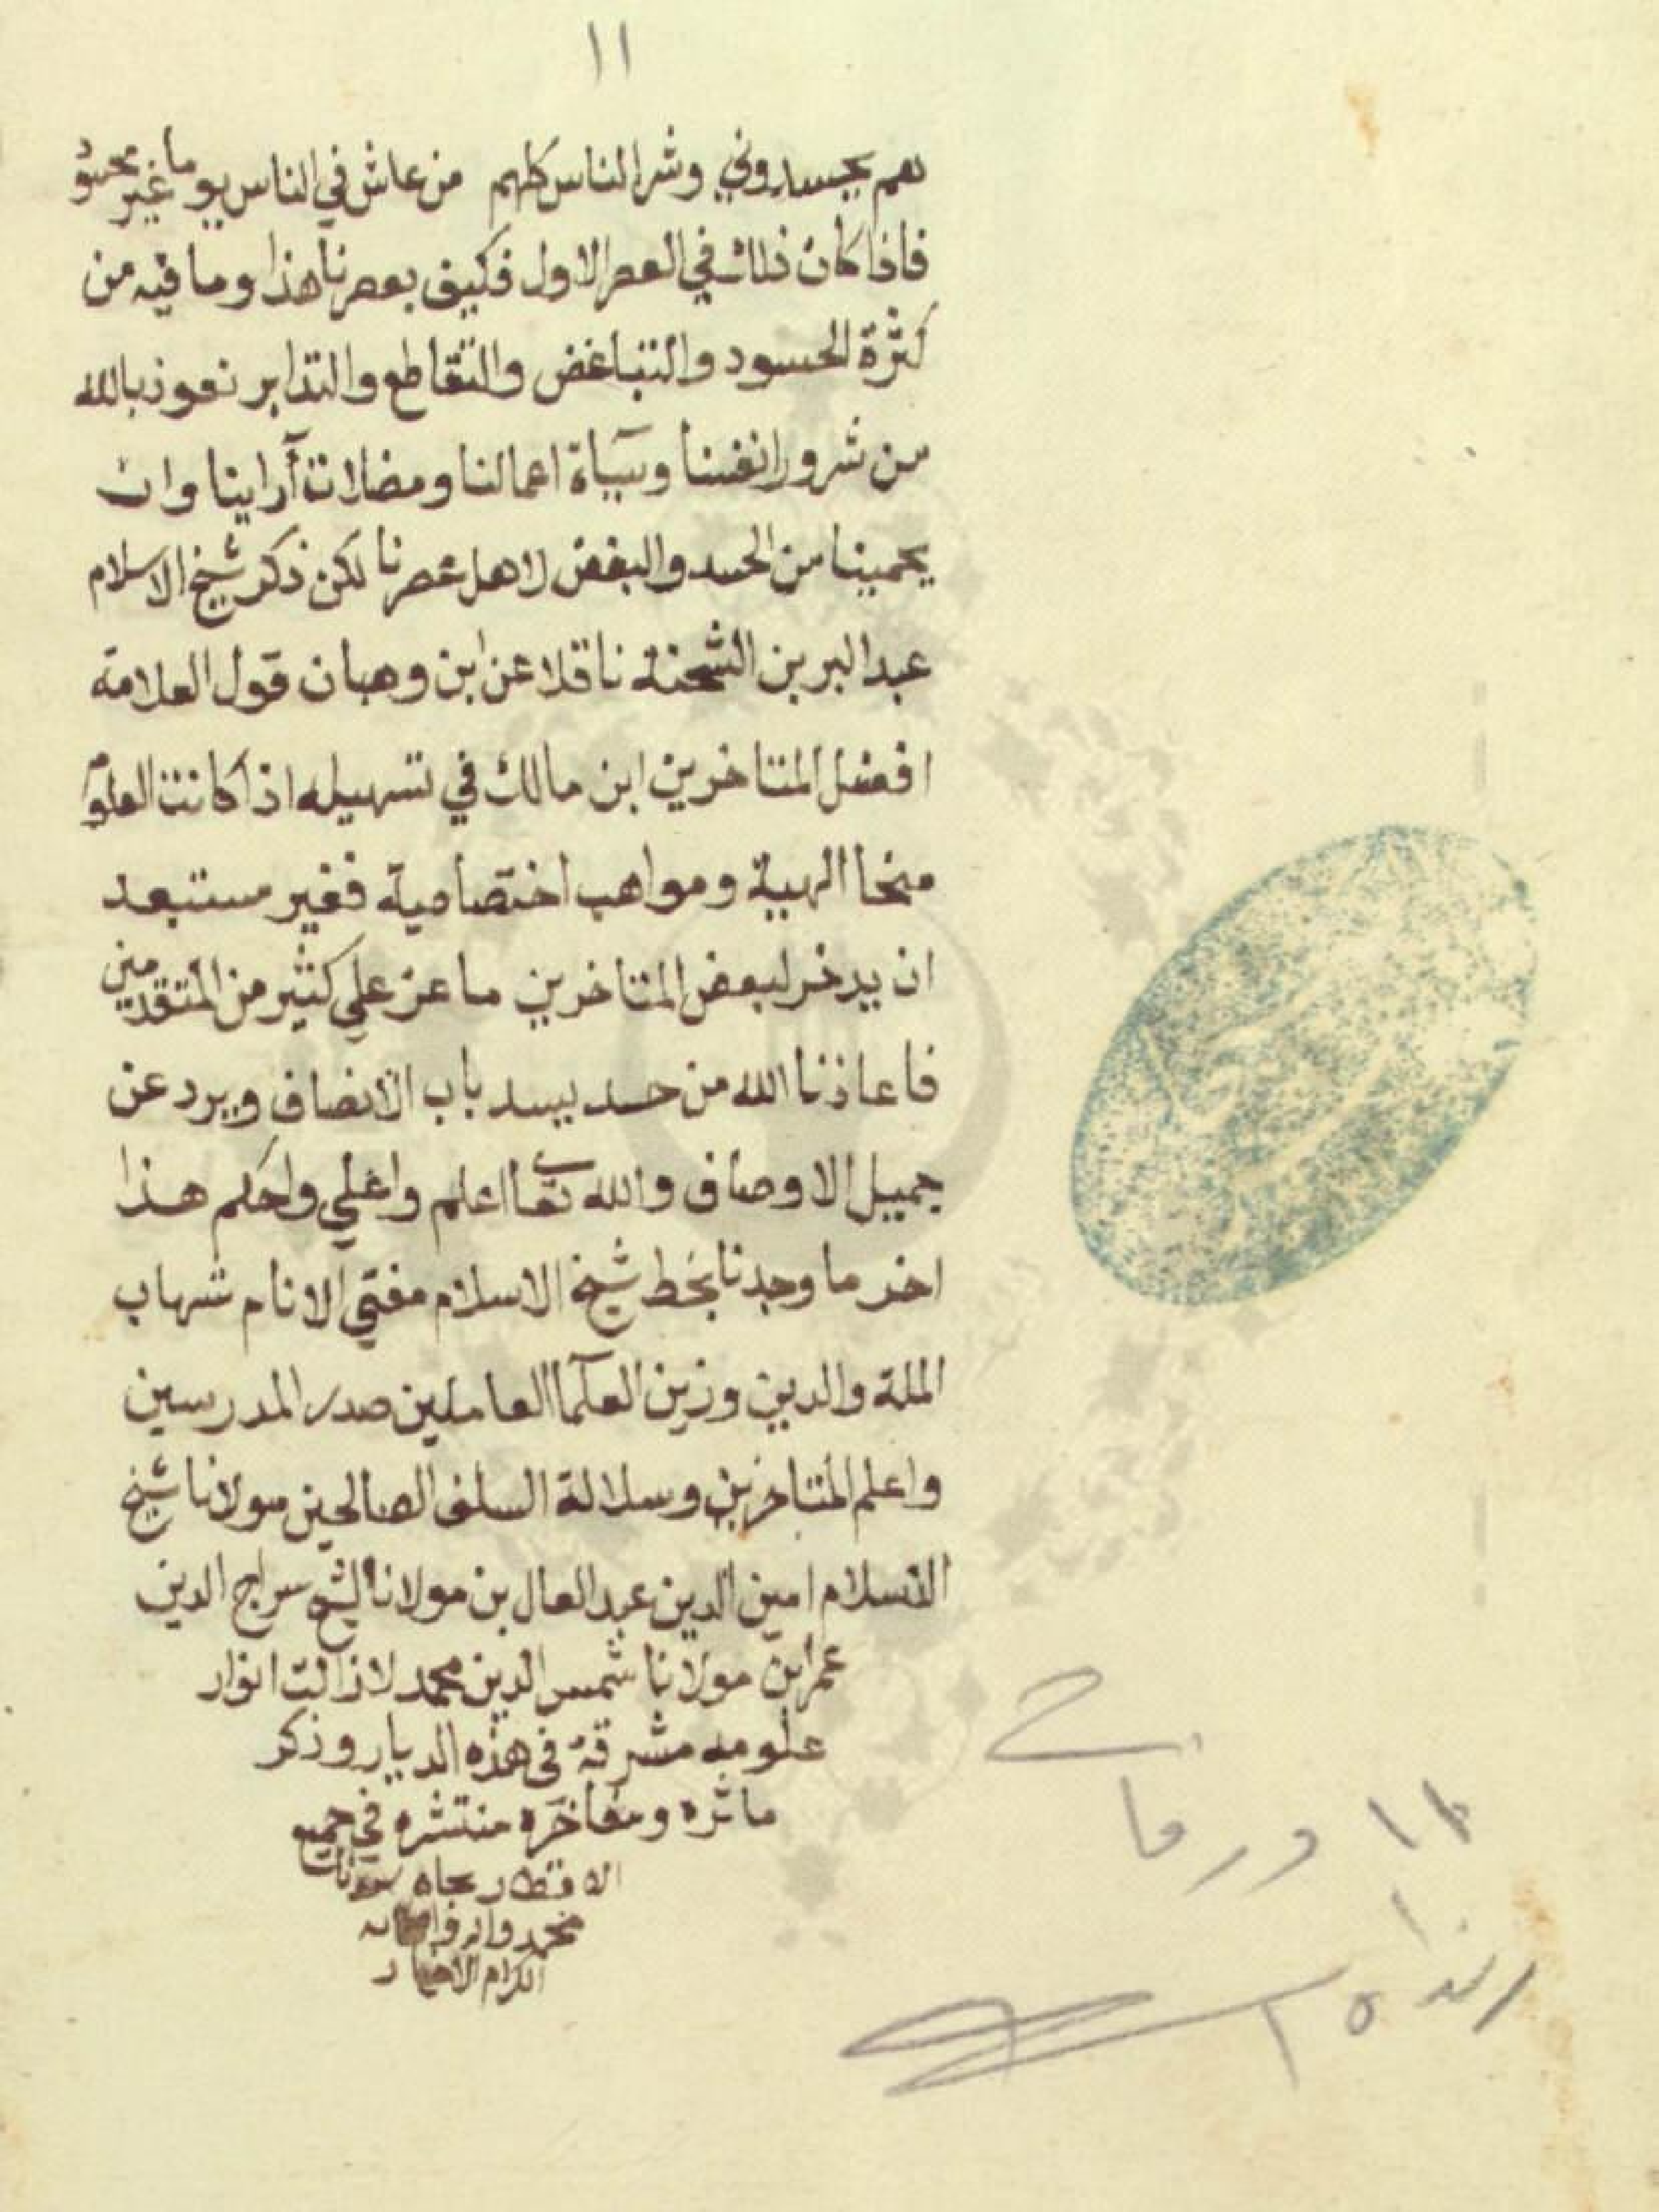 ١١
هم يحسدوني وشر الناس كلهم من عاش في الناس يوما غير محسود
فاذا كان ذلك في العصر الاول فكيف بعصرنا هذا وما فيه من
كثرة الحسود والتباغض والتقاطع والتدابر نعوذ بالله
من شرور انفسنا وسيآة اعمالنا ومضلات آراينا وان
يحمينا من الحسد والبغض لاهل عصرنا لكن ذكر شيخ الاسلام
عبد البر بن الشحنة ناقلا عن ابن وهبان قول العلامة
افضل المتاخرين ابن مالك في تسهيله اذا كانت العلوم
منحا الهية ومواهب اختصاصية فغير مستبعد
ان يدخر لبعض المتاخرين ما عز علي كثير من المتقدمين
فاعاذنا الله من حسد يسد باب الانصاف ويرد عن
جميل الاوصاف والله تعا اعلم واعلي واحكم هذا
اخر ما وجدنا بخط شيخ الاسلام مفتي الانام شهاب
الملة والدين وزين العلما العاملين صدر المدرسين
واعلم المتاخرين وسلالة السلف الصالحين مولانا شيخ
الاسلام امين الدين عبد العال بن مولانا الشيخ سراج الدين
عمر ابن مولانا شمس الدين محمد لا زالت انوار
علومه مشرقة في هذه الديار وذكر
ماثره ومفاخره منتشره في جميع
الاقطار بجاه سيدنا
محمد واله واصحابه
الكرام الاخيار
١١ ورقات